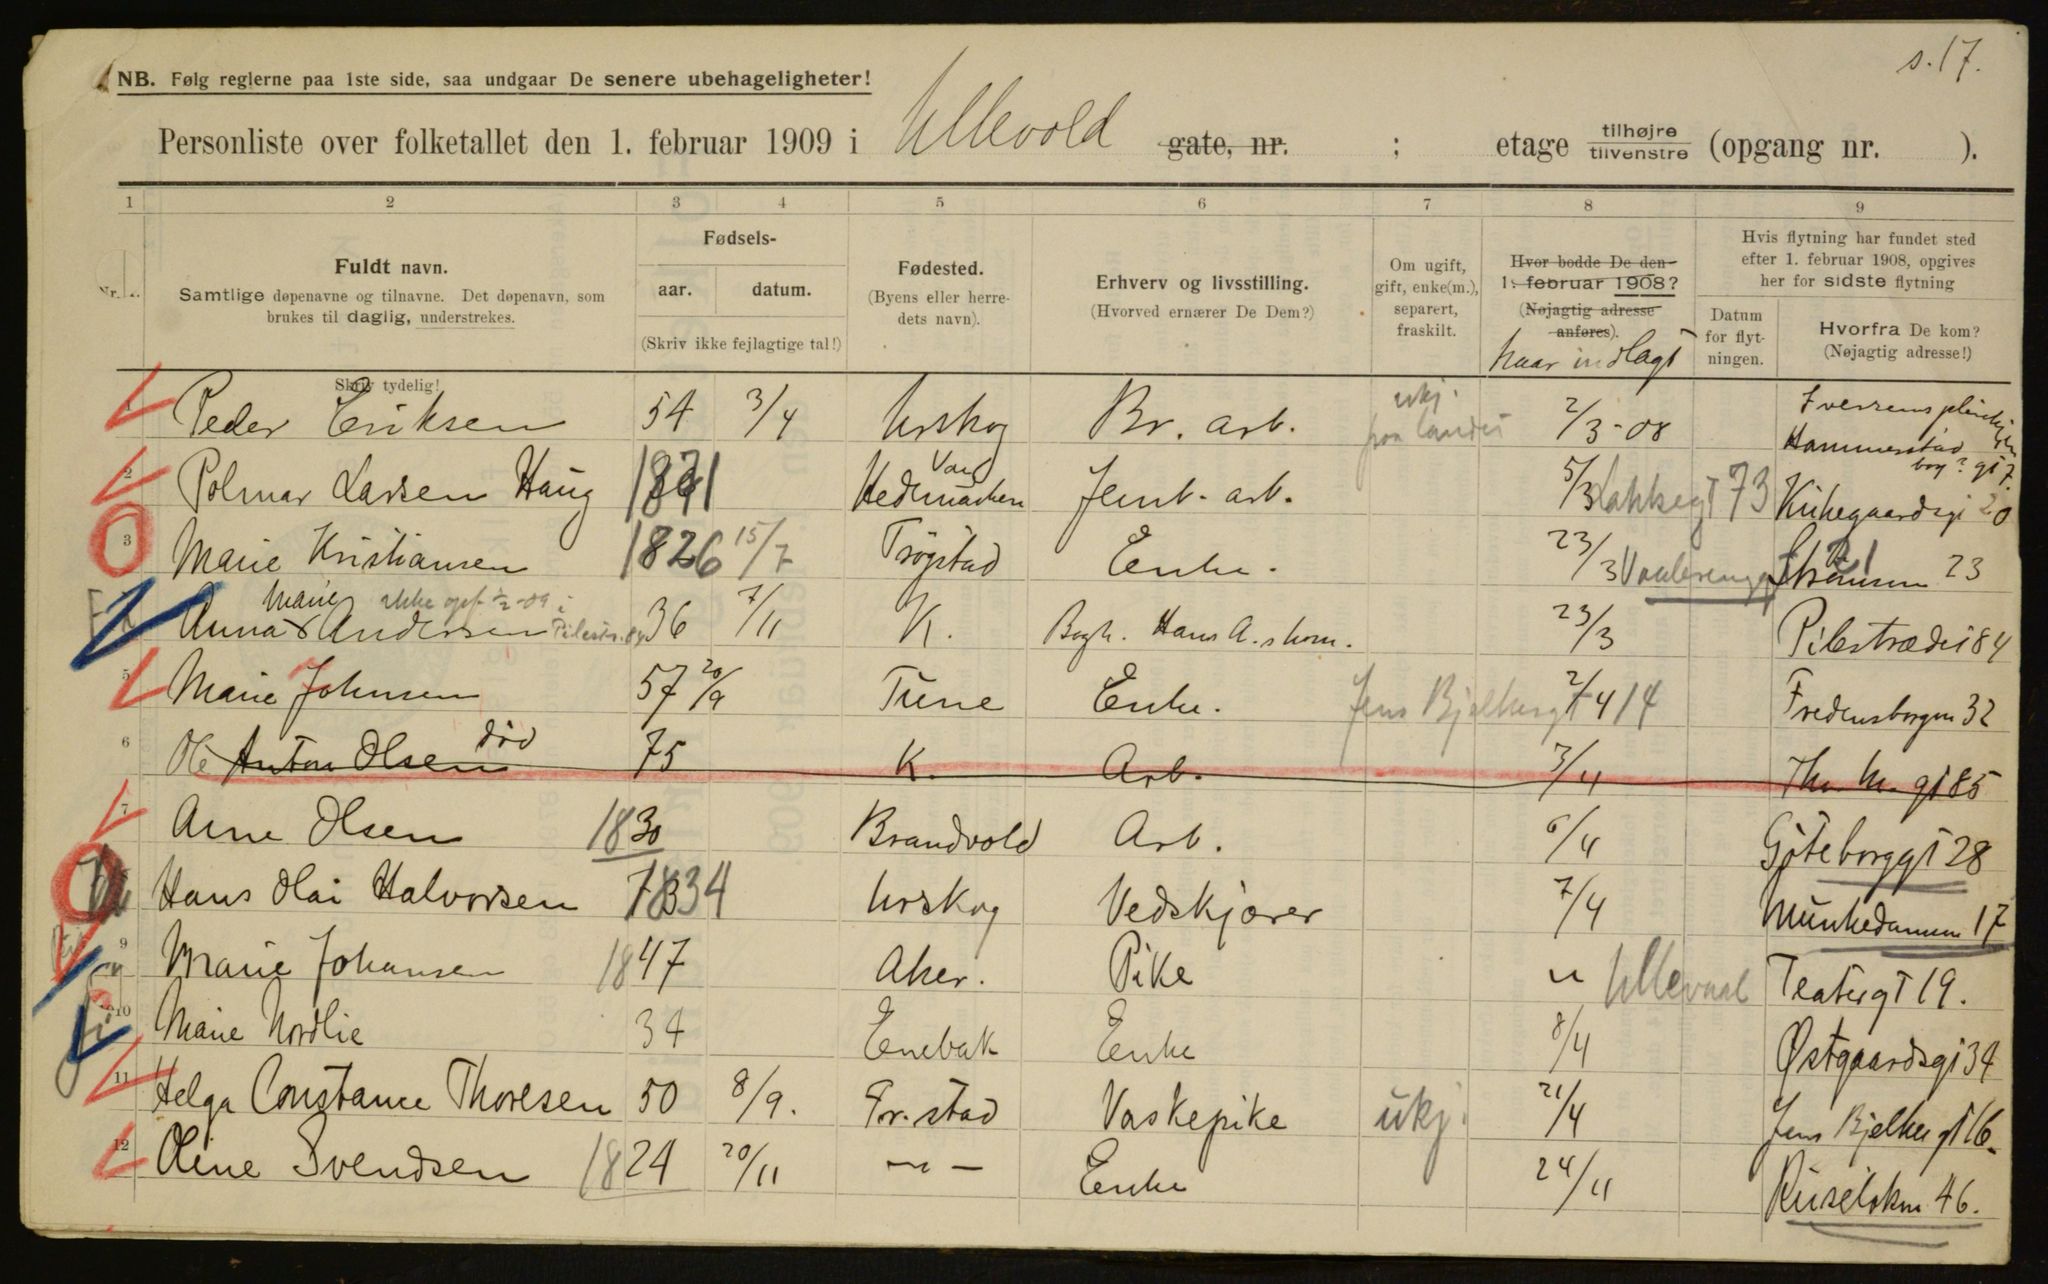 s. 17.
NB. Følg reglerne paa 1ste side, saa undgaar De senere ubehageligheter!
Personliste over folketallet den 1. februar 1909 i Ullevold gate, nr. ; etage tilhøjre/tilvenstre (opgang nr. ).
1 2 3 4 5 6 7 8 9
Nr.
Fuldt navn.
Samtlige døpenavne og tilnavne. Det døpenavn, som
brukes til daglig, understrekes.
Skriv tydelig!
Fødsels-
aar. datum.
(Skriv ikke fejlagtige tal!)
Fødested.
(Byens eller herre-
dets navn).
Erhverv og livsstilling.
(Hvorved ernærer De Dem?)
Om ugift,
gift, enke(m.),
separert,
fraskilt.
Hvor bodde De den
1. februar 1908?
(Nøjagtig adresse
anføres).
Naar indlagt
Hvis flytning har fundet sted
efter 1. februar 1908, opgives
her for sidste flytning
Datum
for flyt-
ningen.
Hvorfra De kom?
(Nøjagtig adresse!)
1 Peder Eriksen 54 3/4 Urskog Br. arb. ukj. paa landet 2/3-08 Hammerstad
2 Polmar Larsen Haug 1871 Hedemarken Jernb. arb. 5/3 73 Kirkegaardsgt 20
3 Marie Kristiansen 1826 15/7 Trøgstad Enke. 23/3 Vaalerenggt 21 Strømsvn 23
Anna Marie Andersen ikke opf. 1/2-09 i Pilestr. 84 36 7/11 K. Bagh. Hans A.s kone. 23/3 Pilestrædet 84
5 Marie Johnsen 57 20/9 Tune Enke. Jens Bjelkesgt 14 2/4 Fredensborgvn 32
6 Ole Anton Olsen død 75 K. Arb. 3/4 Th. M. gt 85
7 Arne Olsen 1830 Brandvold Arb. 6/4 Gøteborggt 28
Hans Olai Halvorsen 1834 Urskog Vedskjærer 7/4 Munkedamsvn 17
9 Marie Johansen 1847 Aker. Pike " Ullevaal Teatergt 19.
10 Marie Nordlie 34 Enebak Enke 8/4 Østgaardsgt 34
11 Helga Constance Thoresen 50 8/9. Fr.stad Vaskepike ukj. 21/4 Jens Bjelkes gt 16.
12 Oline Svendsen 1824 20/11 — " — Enke 24/11 Ruseløkvn 46.